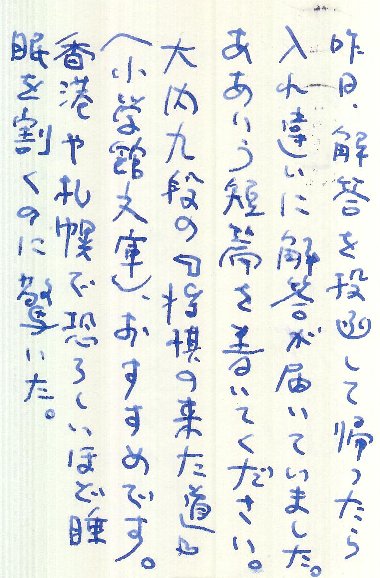 昨日、解答を投函して帰ったら
入れ違いに解答が届いていました。
ああいう短篇を書いてください。
大内九段の『将棋の来た道』
(小学館文庫)、おすすめです。
香港や札幌で恐ろしいほど睡
眠を割くのに驚いた。